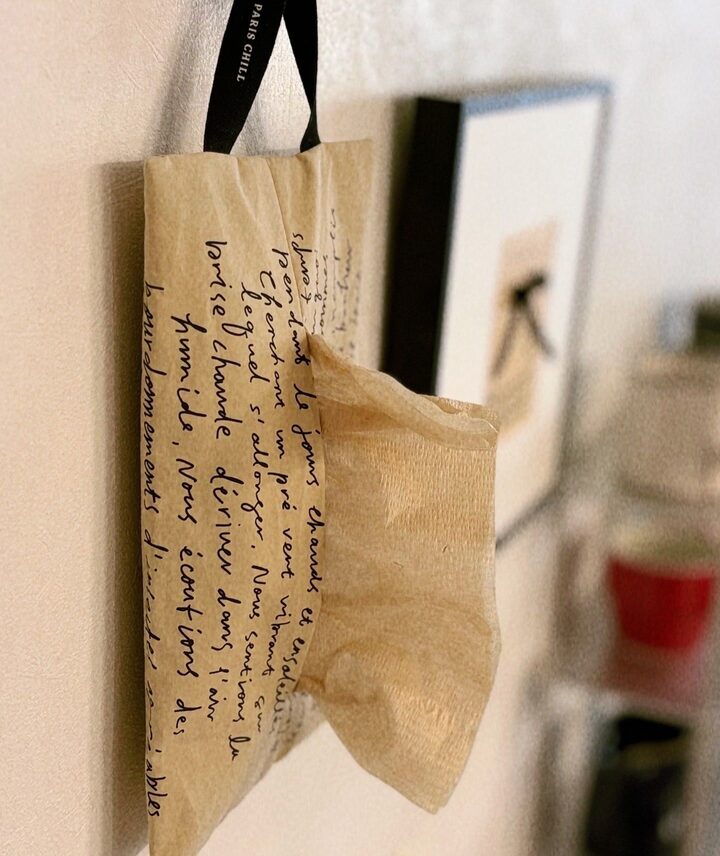 PARIS CHILL
pendant le jours chauds et
cherchant un pré vert vibrant sur
lequel s'allonger. Nous sentions la
brise chaude dériver dans l'air
humide. Nous écoutions des
bourdonnements d'insectes